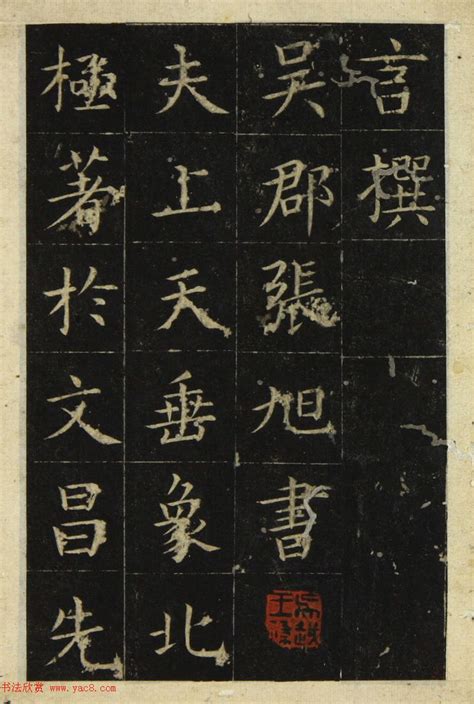 言撰
吳郡張旭書
夫上天垂象北
極著於文昌先
书法欣赏 www.yac8.com